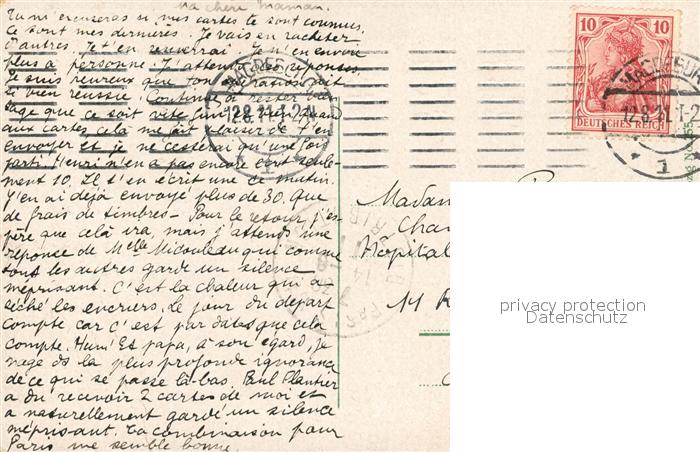 Ma chère Maman.
Tu m'excuseras si mes cartes te sont connues.
Ce sont mes dernières. Je vais en racheter
d'autres. Je t'en renverrai. Je n'en envoie
plus à personne. J'attends des réponses.
Je suis heureux que ton opération ait
si bien réussie. Continue à rester bien
sage que ce soit vite fini. Bien quand
aux cartes, cela me fait plaisir de t'en
envoyer et je ne cesserai qu'une fois
parti. Henri n'en a pas encore écrit seule-
ment 10. Il s'en écrit une ce matin.
J'en ai déjà envoyé plus de 30. Que
de frais de timbres - Pour le retour, j'es-
père que cela ira, mais j'attends une
réponse de Melle Micouleau qui comme
tous les autres garde un silence
méprisant. C'est la chaleur qui a
séché les encriers. Le jour du départ
compte car c'est par dates que cela
compte. Hum! Et papa, à son égard, je
nage ds la plus profonde ignorance
de ce qui se passe là-bas. Paul Plantier
a du recevoir 2 cartes de moi et
a naturellement gardé un silence
méprisant. La combinaison pour
Paris me semble bonne.
10 10
DEUTSCHES REICH
MAGDEBURG
12.8.11.1-2
1
MAGDEBURG
12.8.11.1-2
1
Madam
Cha
Hopital
11 R
privacy protection
Datenschutz